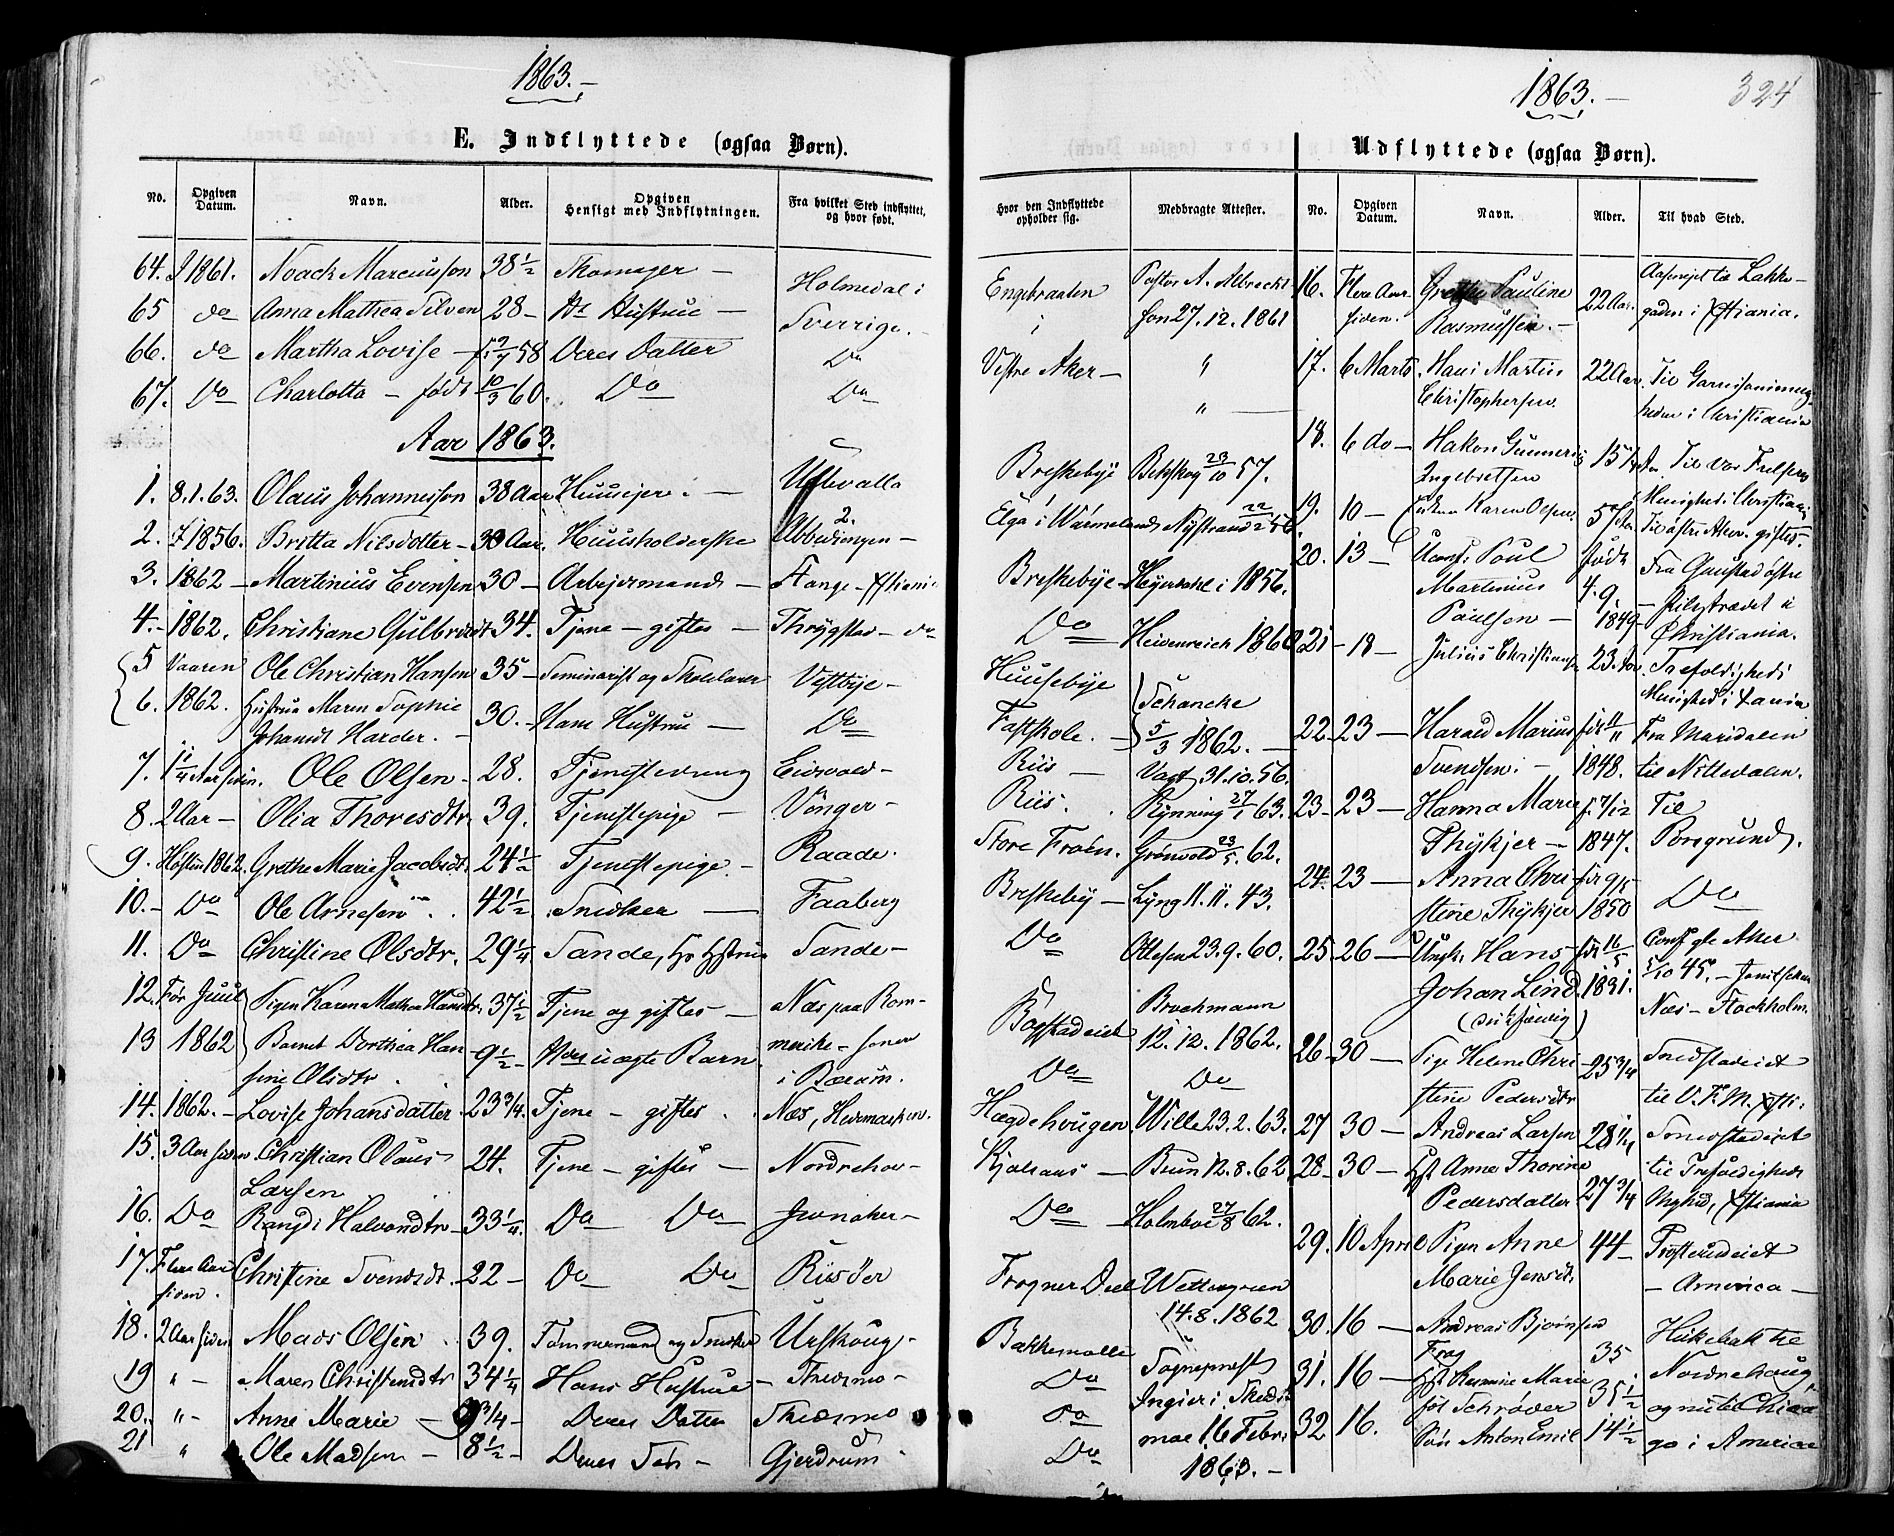 1863.
E. Indflyttede (ogsaa Børn).
No.
Opgiven Datum.
Navn.
Alder.
Opgiven Hensigt med Indflytningen.
Fra hvilket Sted indflyttet, og hvor født.
64. I 1861. Noack Marcusson 38½ Skomager – Holmedal i
65 do Anna Mathea Silven 28 – Hustrue – Sverrige. –
66. do Martha Lovise – 58 Deres Datter Do
67. Do Charlotta – født 10/3 60. Do Do
Aar 1863.
1. 8.1.63. Olaus Johannesson 38 Aar Huusejer. – Udevalla
2. I 1856. Britta Nilsdotter – Aar. Huusholderske
3. 1862 – Martinius Evensen 30 – Arbejdsmand – Stange –
4. – 1862. Christiane Gulbrandsdt 34. Tjene – giftes – Thrygstad – do
5 Vaaren Ole Christian Hansen 35 – Seminarist og Skolelærer Vestbye –
6. 1862. Hustrue Maren Sophie 30. – Hans Hustrue – Do
Harder. –
7. Aar siden. Ole Olsen – 28. Tjenestedreng Eidsvold –
8. 2 Aar – Olia Thoresdtr 39. Tjenestepige – Vinger –
9. Høsten 1862. Grethe Marie Jacobsdt. 24½ Tjenestepige. – Raade.
10. – Do Ole Arnesen 42½ Snedker – Faaberg
11. Do Christine Olsdtr. 29¼ Sande, Hs Hstrue Sande –
12. Før Juul Pigen Karen Mathea Hansdtr. 37½ Tjene og giftes – Næs paa Rom–
13 1862 Barnet Dorthea Han– 9½ – uægte Barn merike –
sine Olsdtr. i Bærum.
14. 1862. – Lovise Johansdatter 23¾. Tjene – giftes. Næs, Hedmarken.
15. 3 Aar siden Christian Olaus 24. Tjene – giftes – Nordrehov –
Larsen
16. Do Rangdi Halvorsdtr 33¼. Do Do Jevnaker –
17 Flere Aar Christine Svendsdt. 22 – Do Do Riisöer
siden.
18. 2 Aar siden Mads Olsen 39. Tömmermand og Snedker Urskoug –
19 " – Maren Christensdtr 34¼ Hans Hustrue – Skedsmo –
20. " – Anne Marie – 9¾ – Deres Datter Skedsmo
21 " Ole Madsen – 8½ – Deres Søn – Gjerdrum –
1863. –
324
Udflyttede (ogsaa Børn).
Hvor den Indflyttede opholder sig.
Medbragte Attester.
No.
Opgiven Datum.
Navn.
Alder.
Til hvad Sted.
Engebraaten Pastor A. Albrecht– 16. Flere Aar Grethe Pauline 22 Aar.
i son 27.12.1861 siden. Rasmussen. – gaden i Xstiania.
Vestre Aker – " 17. 6 Marts Hans Martin 22 Aar. Til Garnisonsmenig–
" Christophersen. heden i Christiania
18. 6 do – Hakon Gunnerius 15 Til Vor Frelsers
Breskebye 23/10 57. Ingebretsen Menighed i Christiania
Elgå i Wärmeland Nystrand 22/2 56 19. 10 – Karen Olsen. 57 Til östre Aker. giftes.
20. 13 – Poul født Fra Gaustad östre
Breskebye Heyerdahl i 1856. Martinius 4.9 – Pilestrædet i
Do Heidenreich 1860 Paulsen – 1849 – Christiania.
21 – 18 – Julius Christiansen 23 Aar. Trefoldigheds
Huusebye Schancke Menighed i Xania
Fastskole. – 5/3 1862. – 22. 23 – Harald Marius 11/11 Fra Maridalen
Riis – Vogt 31.10.56. Svendsen. – 1848. til Nittedalen.
Riis. Rynning 27/1 63. 23. 23 – Hanna Marie f. 7/12 Til
Store Froen. Grønvold 23/5 62. Thykjer – 1847. Porsgrund.
Breskeby – Lyng 11.11.43. 24. 23 – Anna Chri– 9/5 Do
stine Thykjer 1850
Do Ottesen 23.9.60. 25. 26 – Ungk. Hans 16/5 Conf. gte Aker
Johan Lind. 1831. 5/10 45. –
Bogstadeiet Brochmann Næs – Stockholm.
12.12.1862. 26. 30 – Pige Helene Chri– 25¾ Smedstadeiet
Do Do stine Pedersdtr til V. F. M. Xsti:
Hægdehougen. Wille 23.2.63. 27 30 – Andreas Larsen 28¼ Smedstadeiet
Kjelsaas – Bruun 12.8.62. 28. 30 – Hst Anne Thorine til Trefoldigheds
Do Holmboe 27/8 62. Pedersdatter 27¾ Mghd, Xstiania
29. 10 April Pigen Anne 44 – Frosterudeiet
Frogner Deel Wettergreen Marie Jensdt. – America –
14.8.1862 30. 16 – Andreas Bjørnsen
Bakkemølle Sognepræst Frog 35
Do Ingier i Skeds– 31. 16 – Hst Rasmine Marie 35½
Do moe 16 Febr. Schrøder og
Do 1863. – 32 16. Søn Anton Emil 14½ go i America